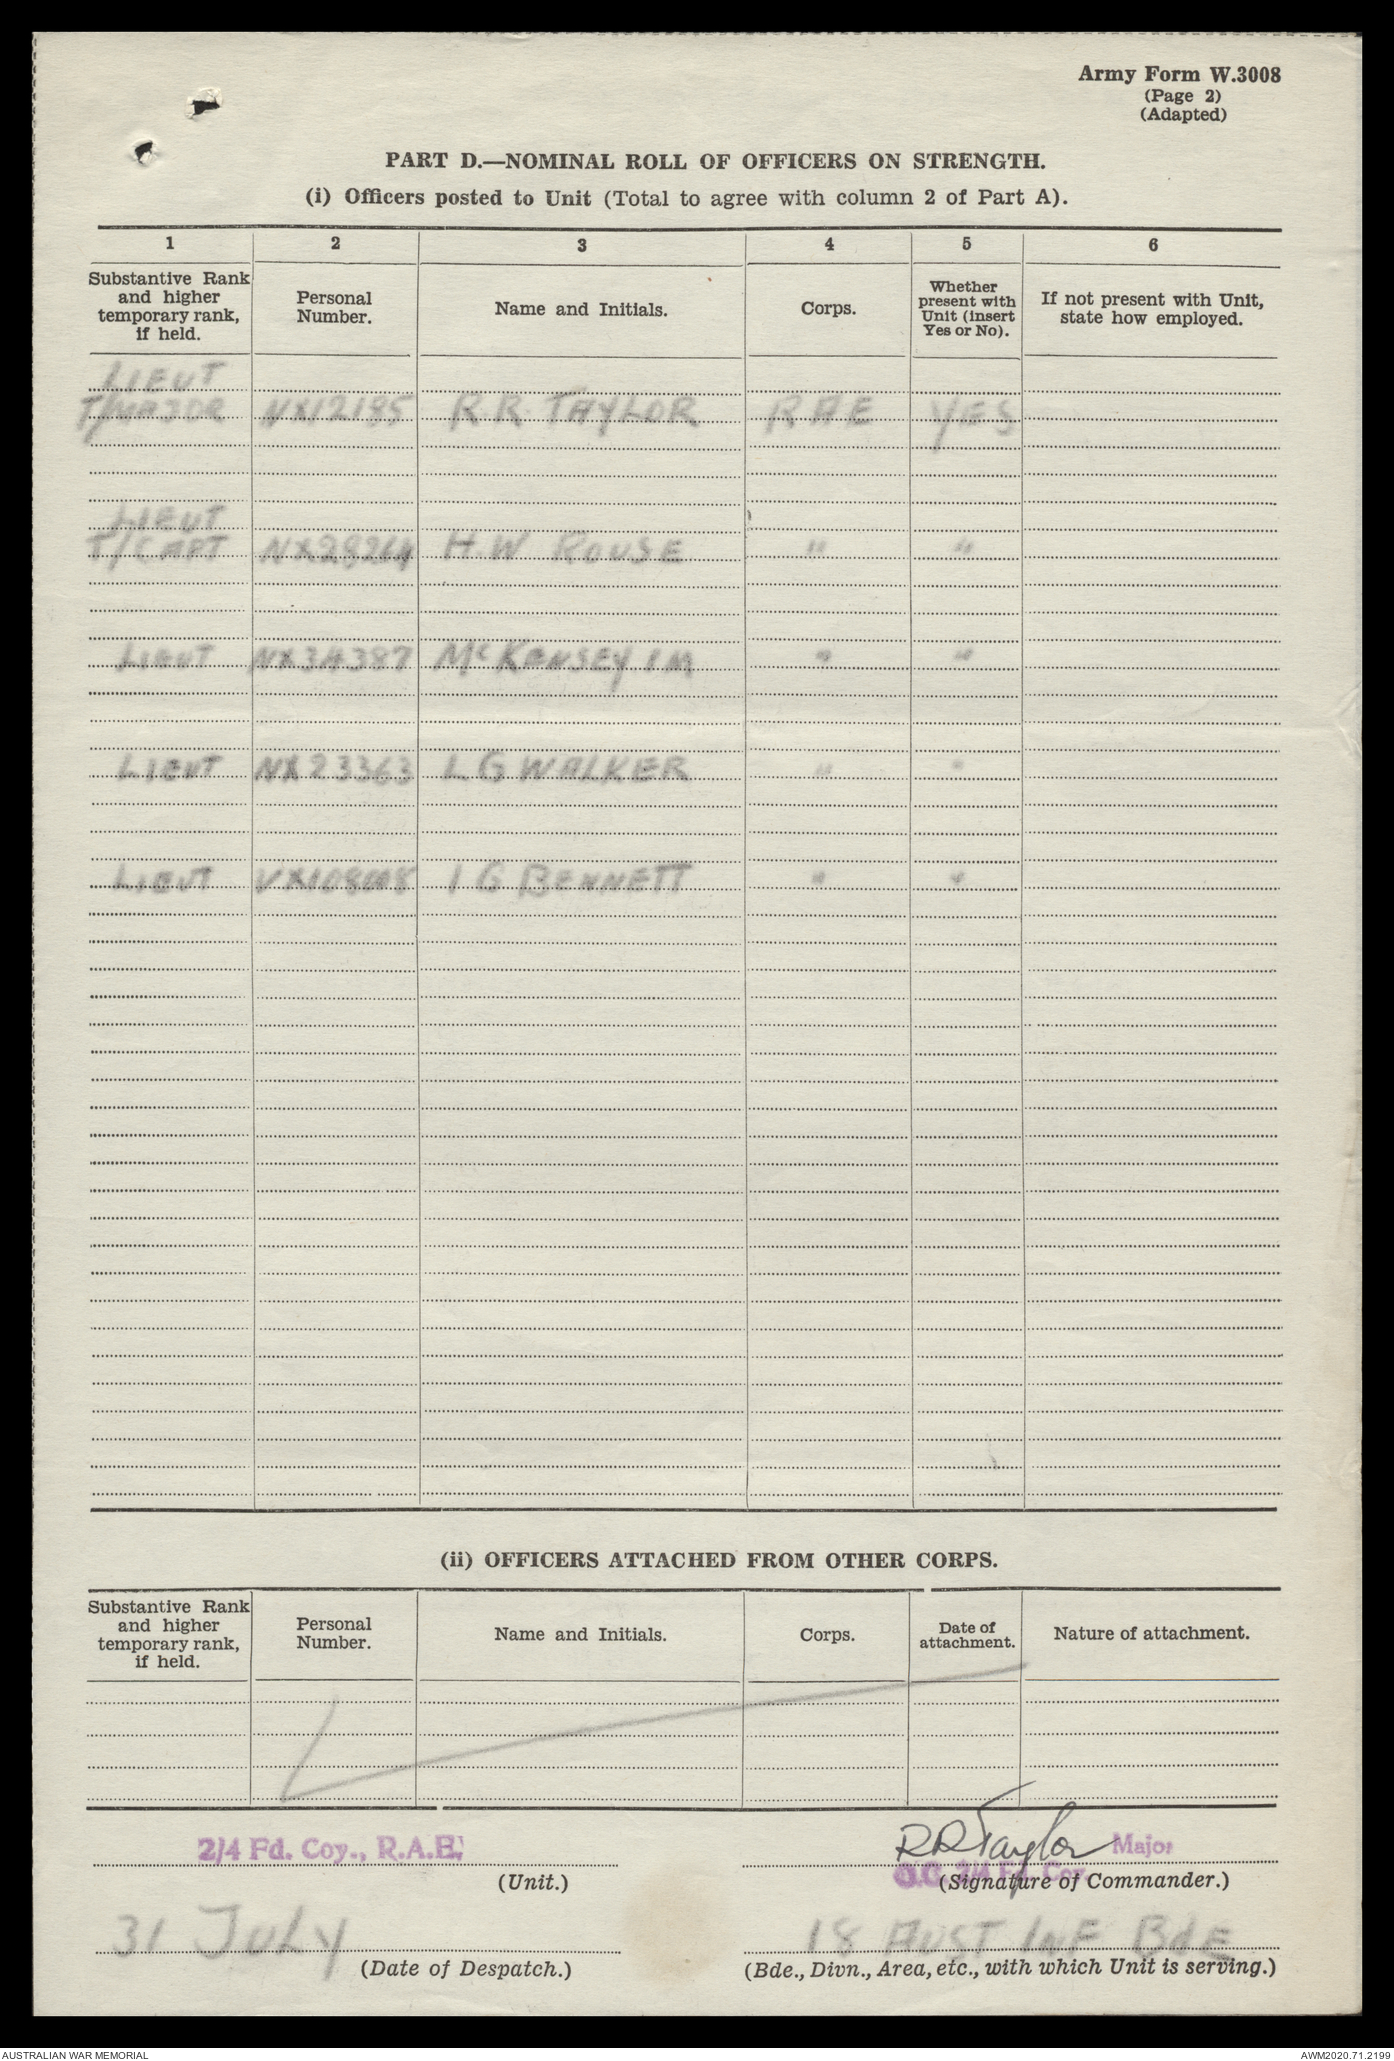 Army Form W.3008
(Page 2)
(Adapted)
PART D.—NOMINAL ROLL OF OFFICERS ON STRENGTH.
(i) Officers posted to Unit (Total to agree with column 2 of Part A).
1 2 3 4 5 6
Substantive Rank and higher temporary rank, if held. Personal Number. Name and Initials. Corps. Whether present with Unit (insert Yes or No). If not present with Unit, state how employed.
LIEUT
T/MAJOR NX12185 R.R. TAYLOR RAE YES
LIEUT
T/CAPT NX28264 H.W ROUSE " "
LIEUT NX34387 McKENSEY I M " "
LIEUT NX23363 L G WALKER " "
LIEUT I G BENNETT " "
(ii) OFFICERS ATTACHED FROM OTHER CORPS.
Substantive Rank and higher temporary rank, if held. Personal Number. Name and Initials. Corps. Date of attachment. Nature of attachment.
2/4 Fd. Coy., R.A.E. RR Taylor Major
O.C. 2/4 Fd. Coy.
(Unit.) (Signature of Commander.)
31 JULY 18 AUST INF Bde
(Date of Despatch.) (Bde., Divn., Area, etc., with which Unit is serving.)
AUSTRALIAN WAR MEMORIAL AWM2020.71.2199